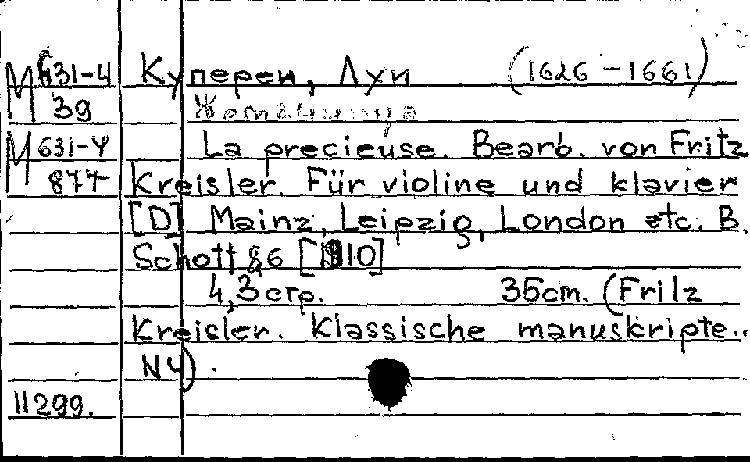 М 631-4 Куперен, Луи (1626-1661)
М 39 Жеманница
М 631-4 La precieuse. Bearb. von Fritz
877 Kreisler. Für violine und klavier
[D] Mainz, Leipzig, London etc. B.
Schott, [1910]
4,3 стр. 35cm. (Fritz
Kreisler. Klassische manuskripte..
N4).
11299.